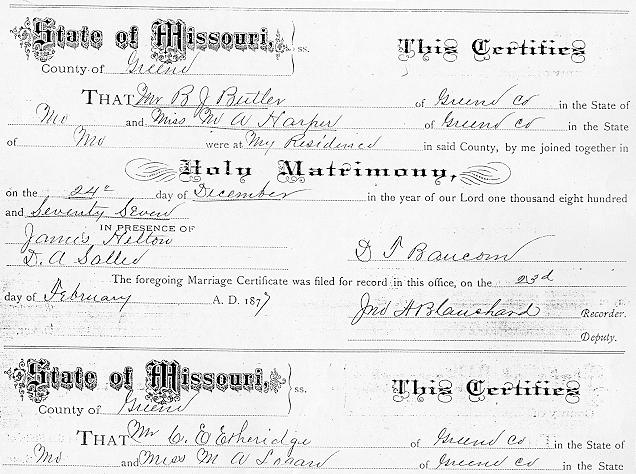 State of Missouri, ss. This Certifies
County of Greene
THAT Mr B J Butler of Greene Co in the State of
Mo and Miss M A Harper of Greene Co in the State
of Mo were at My Residence in said County, by me joined together in
Holy Matrimony,
on the 24th day of December in the year of our Lord one thousand eight hundred
and Seventy Seven
IN PRESENCE OF
James Helton
D. A Sallee D T Baucom
The foregoing Marriage Certificate was filed for record in this office, on the 23d
day of February A. D. 1877 Jno A Blanchard Recorder.
Deputy.
State of Missouri, ss. This Certifies
County of Greene
THAT Mr C. E Etheridge of Greene Co in the State of
Mo and Miss M A Logan of Greene Co in the State